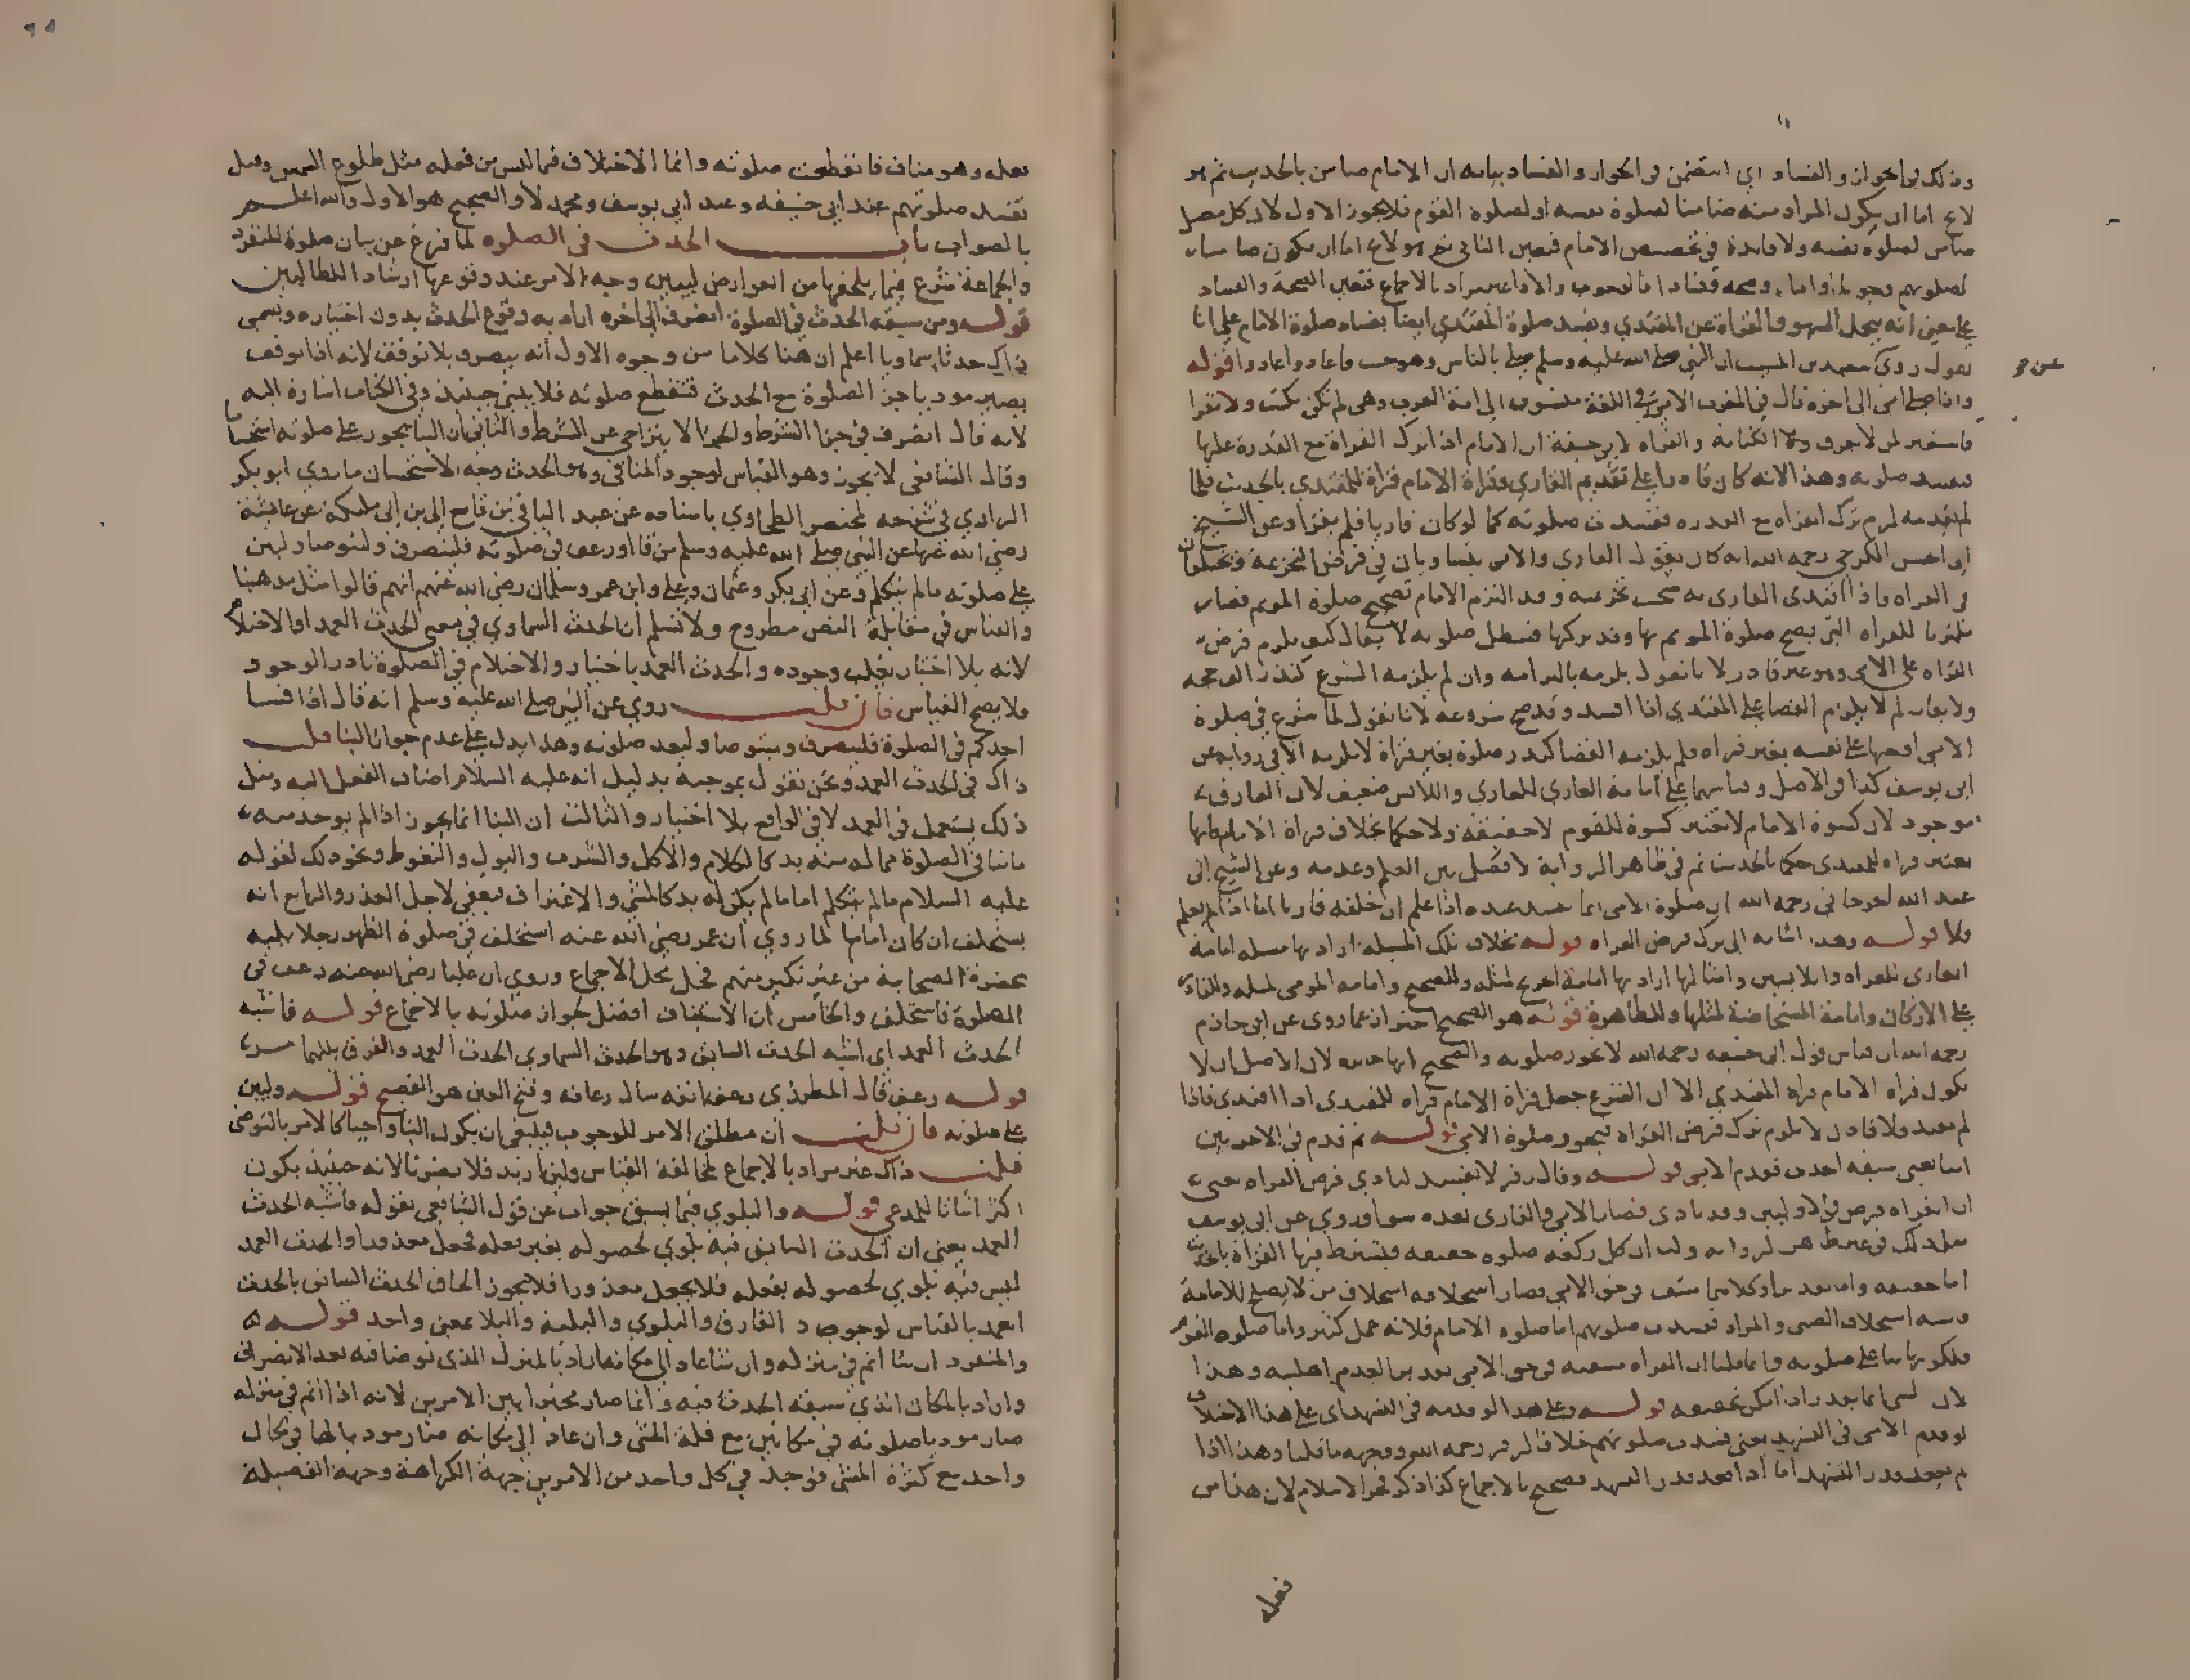 وذلك في الجواز والفساد اي استضمن في الجواز والفساد بيانه ان الامام ضامن بالحديث ثم هو
لا يخ اما ان يكون المراد منه ضامنا لصلوة نفسه او لصلوة القوم فلا يجوز الاول لان كل مصل
ضامن لصلوة نفسه ولا فائدة في تخصيص الامام فتعين الثاني ثم هو لا يخ اما ان يكون ضامنا
لصلوتهم وجوبا او اداء وصحة وفسادا فالوجوب والاداء غير مراد بالاجماع فتعين الصحة والفساد
على معنى انه يتحمل السهو والقراة عن المقتدي ويفسد صلوة المقتدي ايضا بفساد صلوة الامام على انا
نقول روى سعيد بن المسيب ان النبي صلى الله عليه وسلم صلى بالناس وهو جنب فاعاد واعادوا قوله
عن
واذا صلى امي الى اخره قال في المغرب الامي في اللغة منسوب الى امة العرب وهي لم تكن تكتب ولا تقرا
فاستعير لمن لا يعرف الكتابة والقراة لابي حنيفة ان الامام اذا ترك القراة مع القدرة عليها
تفسد صلوته وهذا لانه كان قادرا على تقديم القاري وقراة الامام قراة للمقتدي بالحديث فلما
لم يقدمه لزم ترك القراة مع القدرة فتفسد صلوته كما لو كان قاريا فلم يقرا وعن الشيخ
ابو الحسن الكرخي رحمه الله انه كان يقول القاري والامي يتساويان في فرض التحريمة ويختلفان
في القراه فاذا اقتدى القاري به صحت تحريمته وقد التزم الامام تصحيح صلوة الموتم فصار
ملتزما للقراه التي يصح صلوة الموتم بها وقد تركها فتبطل صلوته لا يقال كيف يلزم فرض
القراه على الامي وهو غير قادر لانا نقول يلزمه بالتزامه وان لم يلزمه الشرع كنذر
ولا يقال لم لا يلزم القضا على المقتدي اذا افسد وقد صح شروعه لانا نقول لما شرع في صلوة
الامي اوجبها على نفسه بغير قراه فلم يلزمه القضا كنذر صلوة بغير قراة لا يلزمه الا في رواية عن
ابي يوسف كذا في الاصل وقياسهما على امامة العاري للعاري واللابس ضعيف لان الفارق
موجود لان كسوة الامام لا تعتبر كسوة للقوم لا حقيقة ولا حكما بخلاف قراة الامام فانها
تعتبر قراه للمقتدي حكما بالحديث ثم في ظاهر الرواية لا فصل بين العلم وعدمه وعن الشيخ ابي
عبد الله الجرجاني رحمه الله ان صلوة الامي انما تفسد عنده اذا علم ان خلفه قاريا اما اذا لم يعلم
فلا قوله وهذا اشاره الى ترك فرض القراه قوله بخلاف تلك المسيلة اراد بها مسله امامة
العاري للعراه واللابسين وامثالها اراد بها امامة الجريح لمثله وللصحيح وامامة المومي لمثله وللقادر
على الاركان وامامة المستحاضة لمثلها وللطاهرة قوله هو الصحيح احتراز عما روى عن ابي حازم
رحمه الله ان قياس قول ابي حنيفه رحمه الله لا يجوز صلوته والصحيح انها جايزه لان الاصل ان لا
يكون قراه الامام قراة المقتدي الا ان الشرع جعل قراة الامام قراه للمقتدي اذا اقتدى فاذا
لم يقتد فلا لم يلزم ترك فرض القراه فيجوز صلوة الامي قوله ثم قدم في الاخريين
اميا يعني سبقه الحدث فقدم الامي قوله وقال زفر لا تفسد لتادي فرض القراه يعني
ان القراه فرض في الاوليين وقد تادى فصار الامي والقاري بعده سوا وروي عن ابي يوسف
مثل ذلك في غير ظاهر الرواية ولنا ان كل ركعة صلوه حقيقه فيشترط فيها القراة بالحديث
اما حقيقه واما تقديرا وكلاهما منتف في حق الامي فصار استخلافه استخلاف من لا يصلح للامامة
وشبه استخلاف الصبي والمراة تفسد صلوتهم اما صلوه الامام فلانه عمل كثير واما صلوه القوم
فلكونها بناء على صلوته وانما قلنا ان القراه منتفية في حق الامي تقديرا لعدم اهليته وهذا
لان الشي انما يقدر اذا امكن تحقيقه قوله وعلى هذا لو قدمه في التشهد اي على هذا الاختلاف
لو قدم الامي في التشهد يعني تفسد صلوتهم خلافا لزفر رحمه الله ووجهه ما قلنا وهذا اذا
لم يقعد قدر التشهد اما اذا قعد قدر التشهد فصحيح بالاجماع كذا ذكر فخر الاسلام لان هذا من
فعله
فعله وهو مناف فانقطعت صلوته وانما الاختلاف فيما ليس من فعله مثل طلوع الشمس وقيل
تفسد صلوتهم عند ابي حنيفه وعند ابي يوسف ومحمد لا والصحيح هو الاول والله اعلم
بالصواب باب الحدث في الصلوه لما فرغ عن بيان صلوة المنفرد
والجماعة شرع فيما يلحقها من العوارض ليبين وجه الامر عند وقوعها ارشادا للطالبين
قوله ومن سبقه الحدث في الصلوة انصرف الى اخره اراد به وقوع الحدث بدون اختياره ويسمى
ذاك حدثا سماويا اعلم ان هنا كلاما من وجوه الاول انه ينصرف بلا توقف لانه اذا توقف
يصير موديا جزء الصلوة مع الحدث فتنقطع صلوته فلا يبني حينئذ وفي الكتاب اشارة اليه
لانه قال انصرف في جزا الشرط والجزا لا يتراخى عن الشرط والثاني ان البنا يجوز على صلوته استحسانا
وقال الشافعي لا يجوز وهو القياس لوجود المنافي وهو الحدث وجه الاستحسان ما روي ابو بكر
الرازي في شرحه لمختصر الطحاوي باسناده عن عبد الباقي بن قانع الى ابن ابي مليكة عن عائشة
رضي الله عنها عن النبي صلى الله عليه وسلم من قاا ورعف في صلوته فلينصرف وليتوضا وليبن
على صلوته ما لم يتكلم وعن ابي بكر وعثمان وعلي وابن عمر وسلمان رضي الله عنهم انهم قالوا مثل مذهبنا
والقياس في مقابلة النص مطروح ولا نسلم ان الحدث السماوي في معنى الحدث العمد او الاحتلام
لانه بلا اختيار يغلب وجوده والحدث العمد باختيار والاحتلام في الصلوة نادر الوجود
فلا يصح القياس فان قلت روي عن النبي صلى الله عليه وسلم انه قال اذا فسا
احدكم في الصلوة فلينصرف ويتوضا وليعد صلوته وهذا يدل على عدم جواز البنا قلت
ذاك في الحدث العمد ونحن نقول بموجبه بدليل انه عليه السلام اضاف الفعل اليه ومثل
ذلك يستعمل في العمد لا في الواقع بلا اختيار والثالث ان البنا انما يجوز اذا لم يوجد منه
ما ينافي الصلوة مما له منه بد كالكلام والاكل والشرب والبول والتغوط ونحو ذلك لقوله
عليه السلام ما لم يتكلم اما ما لم يكن له بد كالمشي والاغتراف يعفى لاجل العذر والرابع انه
يستخلف ان كان اماما لما روي ان عمر رضي الله عنه استخلف في صلوة الظهر رجلا يليه
بحضرة الصحابة من غير نكير منهم فحل محل الاجماع وروي ان عليا رضي الله عنه رعف في
الصلوة فاستخلف والخامس ان الاستيناف افضل لجواز صلوته بالاجماع قوله فاشبه
الحدث العمد اي اشبه الحدث السابق وهو الحدث السماوي الحدث العمد والفرق بينهما مر
قوله رعف قال المطرزي رعف انفه سال رعافه وفتح العين هو الفصيح قوله وليبن
على صلوته فان قلت ان مطلق الامر للوجوب فينبغي ان يكون البنا واجبا كالامر بالتوضي
قلت ذاك غير مراد بالاجماع لمخالفة القياس ولئن اريد فلا يضرنا لانه حينئذ يكون
اكثر اثباتا للمدعي قوله والبلوي فيما يسبق جواب عن قول الشافعي بقوله فاشبه الحدث
العمد يعني ان الحدث السابق فيه بلوي لحصوله بغير فعله فجعل معذورا والحدث العمد
ليس فيه بلوي لحصوله بفعله فلا يجعل معذورا فلا يجوز الحاق الحدث السابق بالحدث
العمد بالقياس لوجود الفارق والبلوي والبلية والبلا بمعنى واحد قوله
والمنفرد ان شا اتم في منزله وان شا عاد الى مكانه اراد بالمنزل الذي توضا فيه بعد الانصراف
واراد بالمكان الذي سبقه الحدث فيه وانما صار مخيرا بين الامرين لانه اذا اتم في منزله
صار موديا صلوته في مكانين مع قلة المشي وان عاد الى مكانه صار موديا لها في مكان
واحد مع كثرة المشي فوجد في كل واحد من الامرين جهة الكراهة وجهة الفضيلة